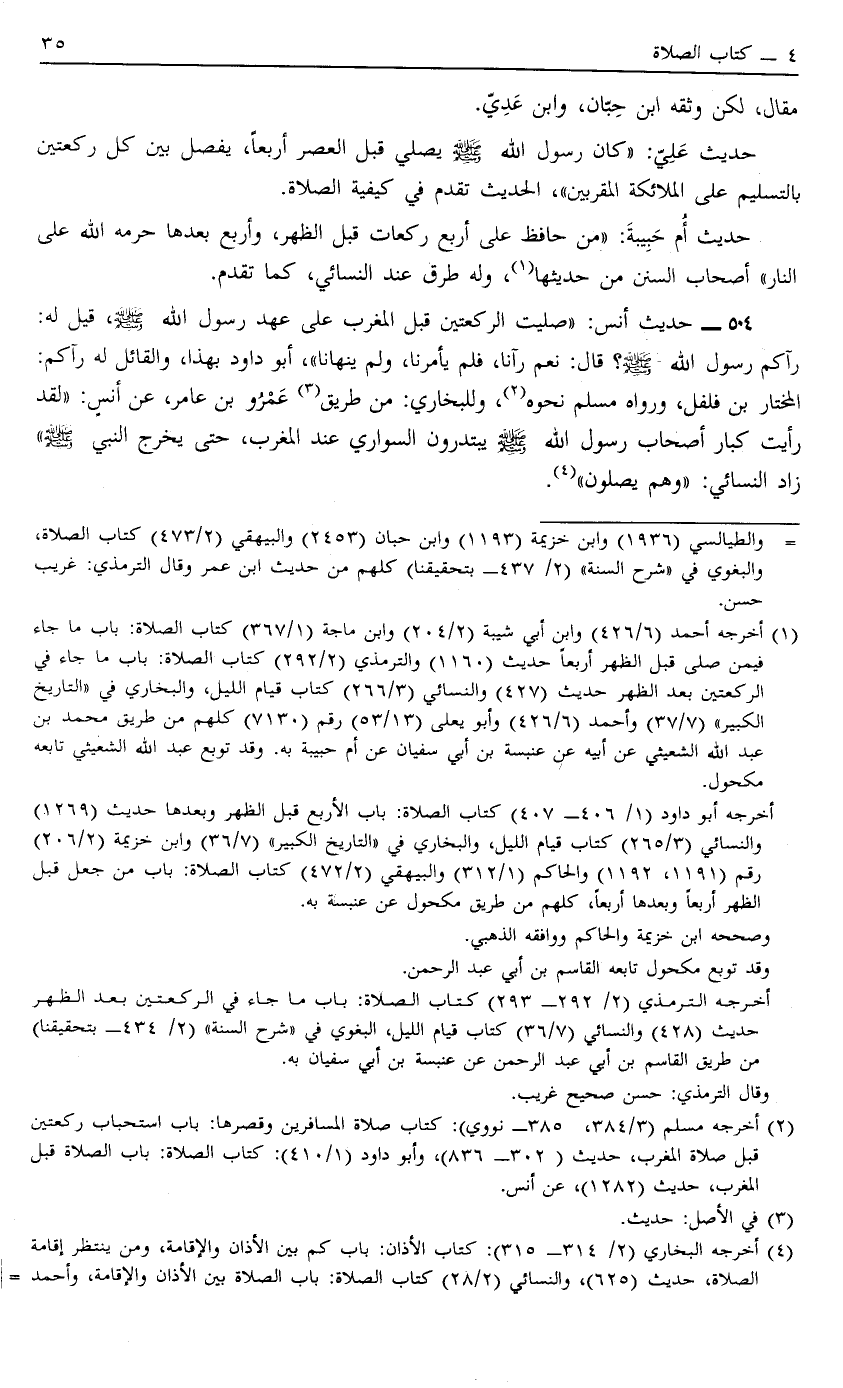 ٤ ــ كتاب الصلاة
٣٥
مقال، لكن وثقه ابن حِبّان، وابن عَدِيّ.
حديث عَلِيّ: «كان رسول الله ﷺ يصلي قبل العصر أربعاً، يفصل بين كل ركعتين
بالتسليم على الملائكة المقربين»، الحديث تقدم في كيفية الصلاة.
حديث أُم حَبِيبةَ: «من حافظ على أربع ركعات قبل الظهر، وأربع بعدها حرمه الله على
النار» أصحاب السنن من حديثها(١)، وله طرق عند النسائي، كما تقدم.
٥٠٤ ــ حديث أنس: «صليت الركعتين قبل المغرب على عهد رسول الله ﷺ، قيل له:
رآكم رسول الله ﷺ؟ قال: نعم رآنا، فلم يأمرنا، ولم ينهانا»، أبو داود بهذا، والقائل له رآكم:
المختار بن فلفل، ورواه مسلم نحوه(٢)، وللبخاري: من طريق(٣) عَمْرُو بن عامر، عن أنسٍ: «لقد
رأيت كبار أصحاب رسول الله ﷺ يبتدرون السواري عند المغرب، حتى يخرج النبي ﷺ»
زاد النسائي: «وهم يصلون»(٤).
= والطيالسي (١٩٣٦) وابن خزيمة (١١٩٣) وابن حبان (٢٤٥٣) والبيهقي (٤٧٣/٢) كتاب الصلاة،
والبغوي في «شرح السنة» (٢/ ٤٣٧ــ بتحقيقنا) كلهم من حديث ابن عمر وقال الترمذي: غريب
حسن.
(١) أخرجه أحمد (٤٢٦/٦) وابن أبي شيبة (٢٠٤/٢) وابن ماجة (٣٦٧/١) كتاب الصلاة: باب ما جاء
فيمن صلى قبل الظهر أربعاً حديث (١١٦٠) والترمذي (٢٩٢/٢) كتاب الصلاة: باب ما جاء في
الركعتين بعد الظهر حديث (٤٢٧) والنسائي (٢٦٦/٣) كتاب قيام الليل، والبخاري في «التاريخ
الكبير» (٣٧/٧) وأحمد (٤٢٦/٦) وأبو يعلى (٥٣/١٣) رقم (٧١٣٠) كلهم من طريق محمد بن
عبد الله الشعيثي عن أبيه عن عنبسة بن أبي سفيان عن أم حبيبة به. وقد توبع عبد الله الشعيثي تابعه
مكحول.
أخرجه أبو داود (١/ ٤٠٦ــ ٤٠٧) كتاب الصلاة: باب الأربع قبل الظهر وبعدها حديث (١٢٦٩)
والنسائي (٢٦٥/٣) كتاب قيام الليل، والبخاري في «التاريخ الكبير» (٣٦/٧) وابن خزيمة (٢٠٦/٢)
رقم (١١٩١، ١١٩٢) والحاكم (٣١٢/١) والبيهقي (٤٧٢/٢) كتاب الصلاة: باب من جعل قبل
الظهر أربعاً وبعدها أربعاً، كلهم من طريق مكحول عن عنبسة به.
وصححه ابن خزيمة والحاكم ووافقه الذهبي.
وقد توبع مكحول تابعه القاسم بن أبي عبد الرحمن.
أخرجه الترمذي (٢/ ٢٩٢ــ ٢٩٣) كتاب الصلاة: باب ما جاء في الركعتين بعد الظهر
حديث (٤٢٨) والنسائي (٣٦/٧) كتاب قيام الليل، البغوي في «شرح السنة» (٢/ ٤٣٤ــ بتحقيقنا)
من طريق القاسم بن أبي عبد الرحمن عن عنبسة بن أبي سفيان به.
وقال الترمذي: حسن صحيح غريب.
(٢) أخرجه مسلم (٣٨٤/٣، ٣٨٥ــ نووي): كتاب صلاة المسافرين وقصرها: باب استحباب ركعتين
قبل صلاة المغرب، حديث ( ٣٠٢ــ ٨٣٦)، وأبو داود (٤١٠/١): كتاب الصلاة: باب الصلاة قبل
المغرب، حديث (١٢٨٢)، عن أنس.
(٣) في الأصل: حديث.
(٤) أخرجه البخاري (٢/ ٣١٤ــ ٣١٥): كتاب الأذان: باب كم بين الأذان والإقامة، ومن ينتظر إقامة
الصلاة، حديث (٦٢٥)، والنسائي (٢٨/٢) كتاب الصلاة: باب الصلاة بين الأذان والإقامة، وأحمد =